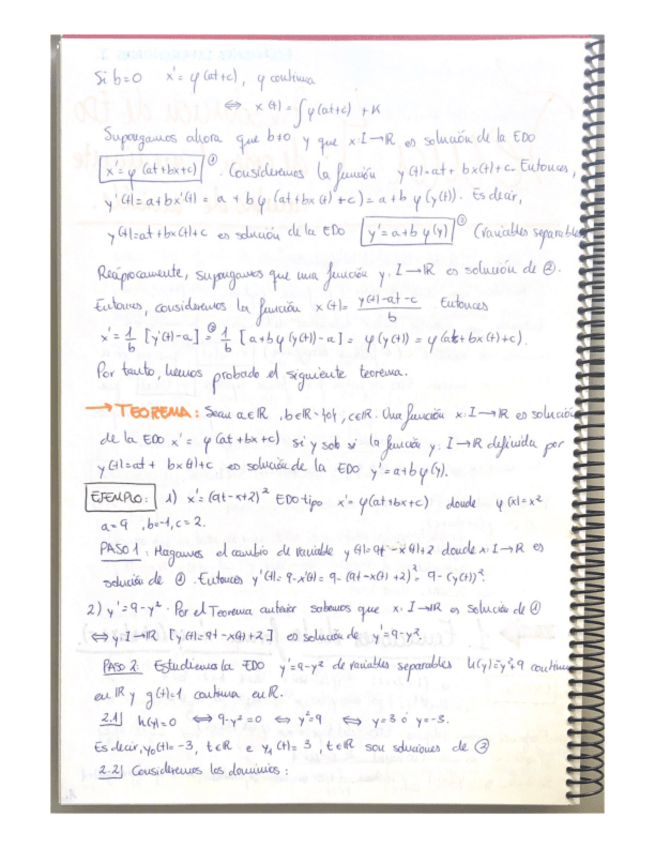 Si b=0 x'= φ(at+c), φ continua
⇔ x(t) = ∫φ(at+c) + K
Supongamos ahora que b≠0 y que x: I→ℝ es solución de la EDO
x'= φ(at+bx+c) ① . Consideremos la función y(t)=at+bx(t)+c. Entonces,
y'(t)=a+bx'(t) = a + bφ(at+bx(t)+c) = a+bφ(y(t)). Es decir,
y(t)=at+bx(t)+c es solución de la EDO y'=a+bφ(y) ② (variables separables
Recíprocamente, supongamos que una función y: I→ℝ es solución de ②.
Entonces, consideremos la función x(t)= (y(t)-at-c)/b Entonces
x'= 1/b [y'(t)-a] =② 1/b [a+bφ(y(t))-a] = φ(y(t)) = φ(at+bx(t)+c).
Por tanto, hemos probado el siguiente teorema.
→ TEOREMA: Sean a∈ℝ, b∈ℝ-{0}, c∈ℝ. Una función x: I→ℝ es solución
de la EDO x' = φ(at+bx+c) si y solo si la función y: I→ℝ definida por
y(t)=at+bx(t)+c es solución de la EDO y'=a+bφ(y).
EJEMPLO: 1) x'=(9t-x+2)² EDO tipo x'=φ(at+bx+c) donde φ(x)=x²
a=9, b=-1, c=2.
PASO 1: Hagamos el cambio de variable y(t)=9t-x(t)+2 donde x: I→ℝ es
solución de ①. Entonces y'(t)=9-x'(t)=9-(9t-x(t)+2)²=9-(y(t))².
2) y'=9-y². Por el Teorema anterior sabemos que x: I→ℝ es solución de ①
⇔ y: I→ℝ [y(t)=9t-x(t)+2] es solución de y'=9-y².
PASO 2: Estudiemos la EDO y'=9-y² de variables separables h(y)=y²-9 continua
en ℝ y g(t)=1 continua en ℝ.
2.1) h(y)=0 ⇔ 9-y²=0 ⇔ y²=9 ⇔ y=3 ó y=-3.
Es decir, y₀(t)=-3, t∈ℝ e y₁(t)=3, t∈ℝ son soluciones de ②
2.2) Consideremos los dominios: